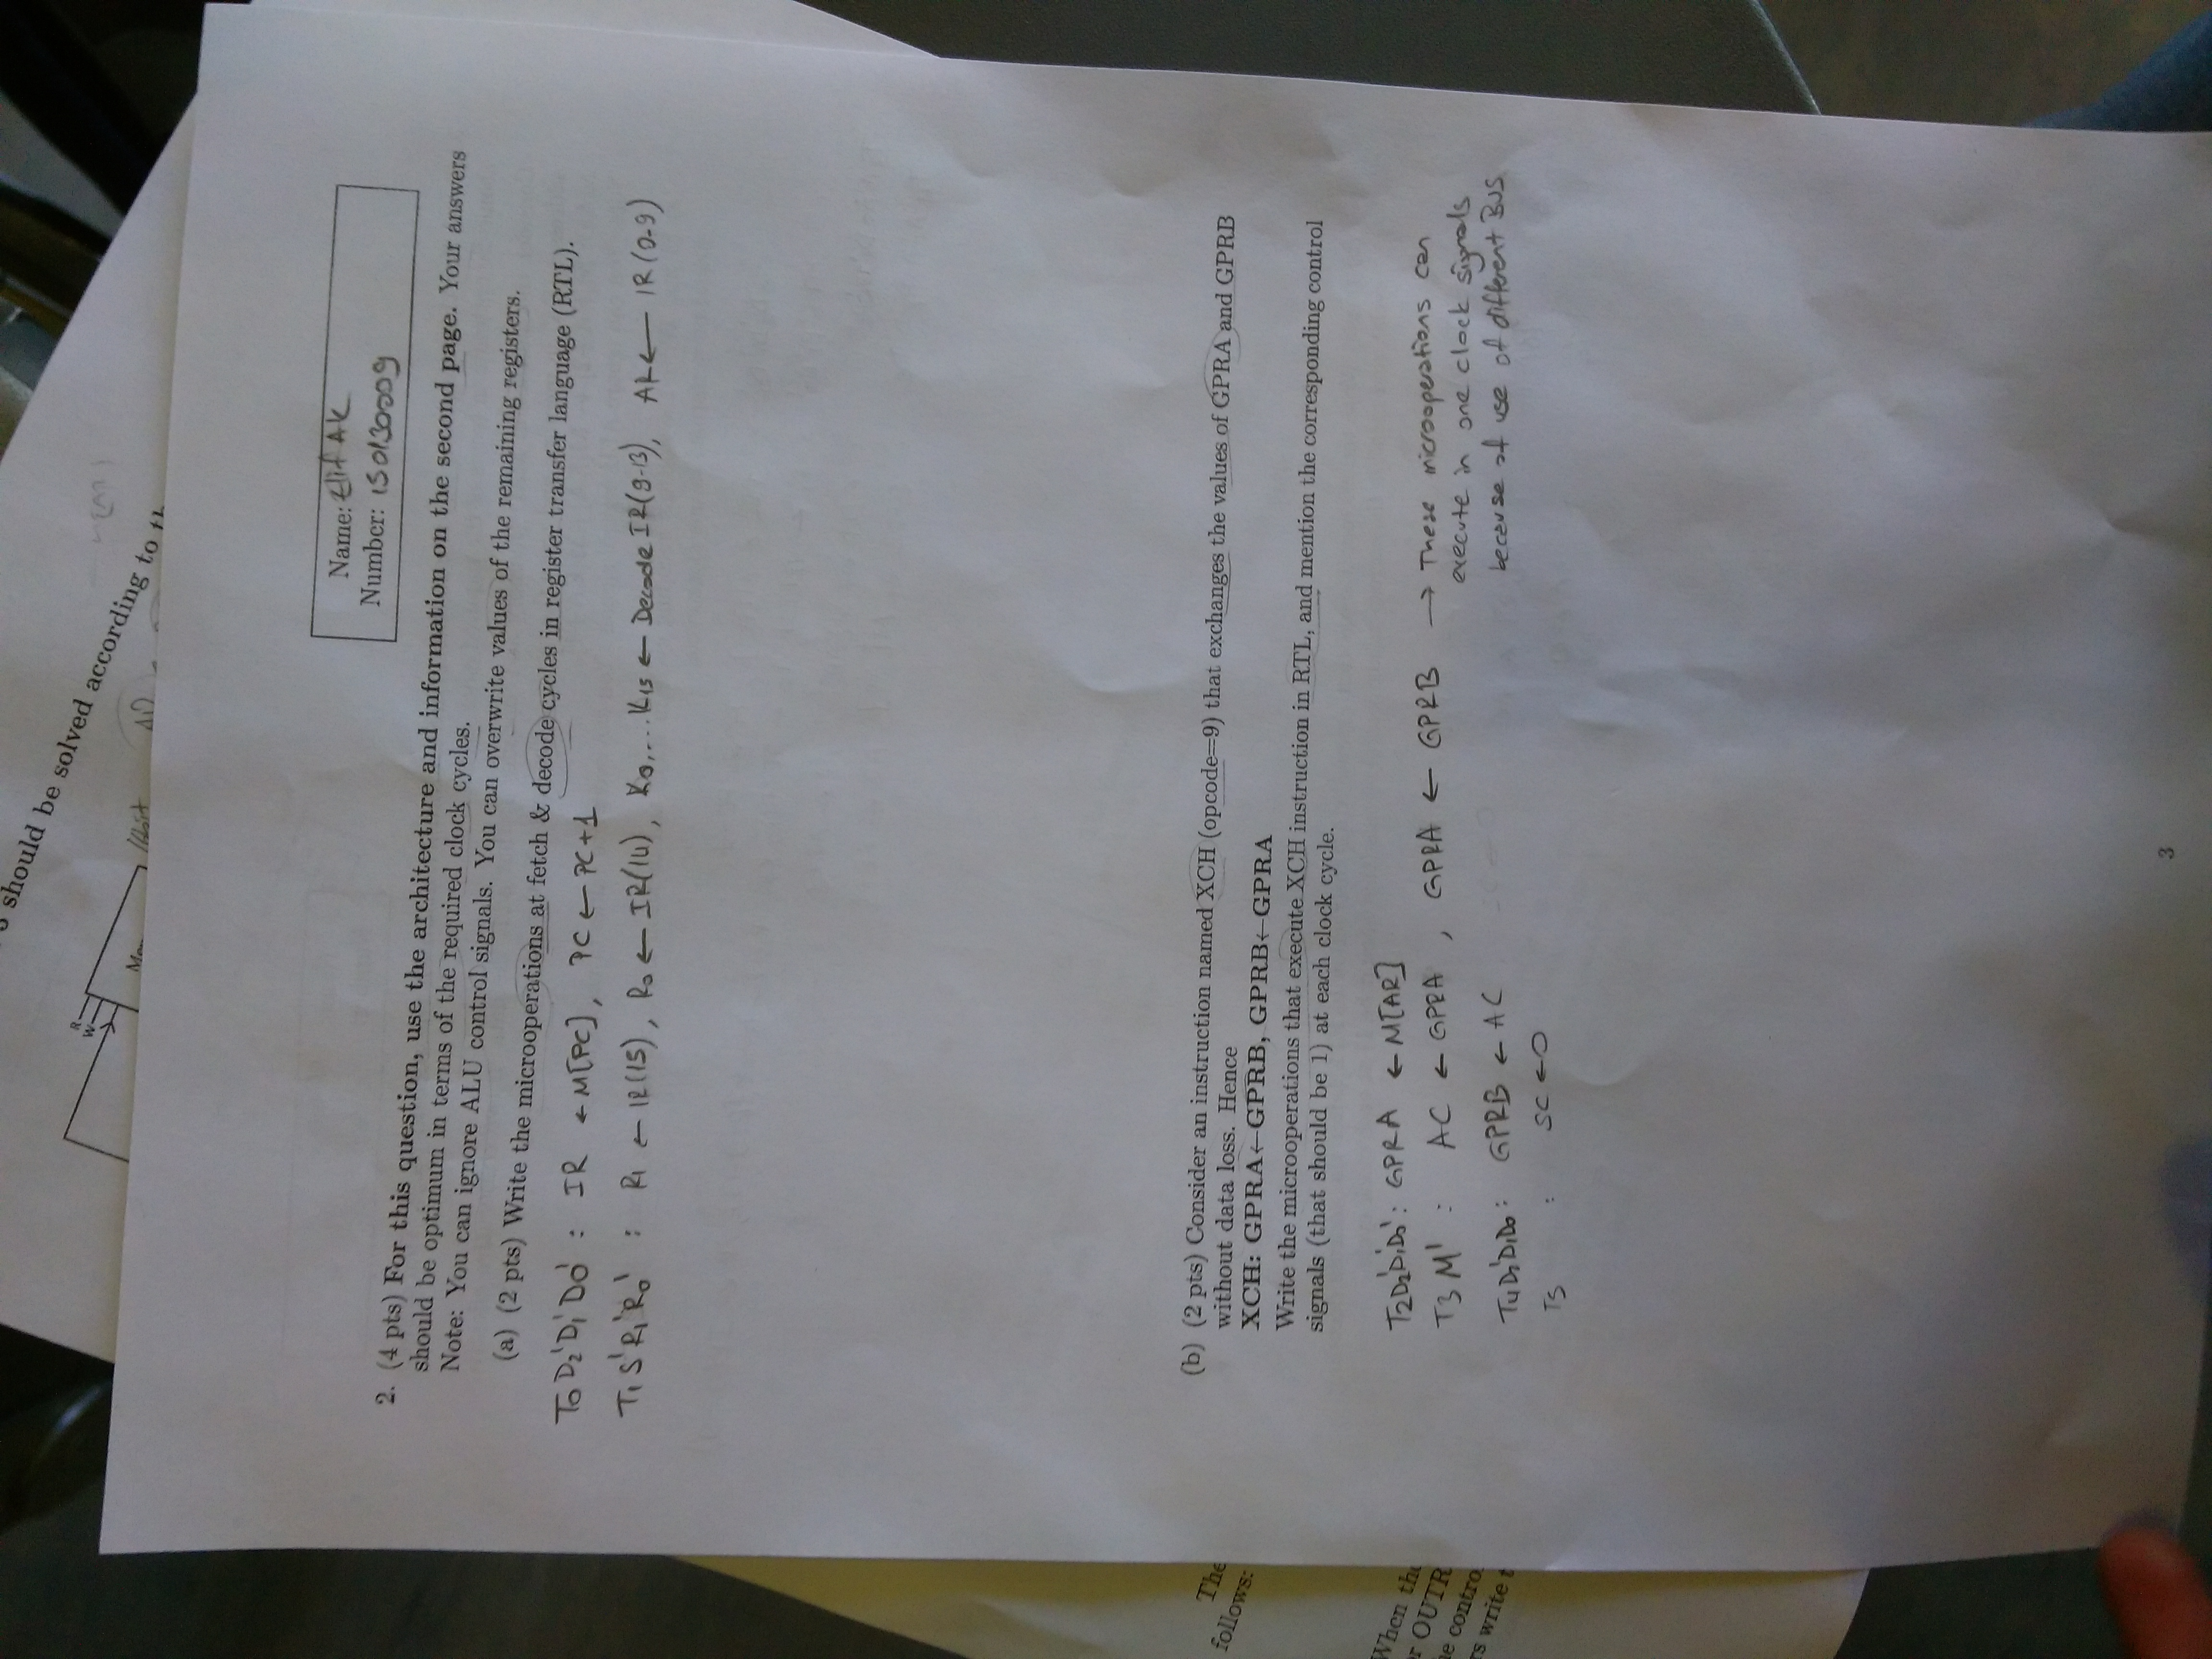 should be solved according to th
R
W
Name: Elif AK
Number: 150130009
2. (4 pts) For this question, use the architecture and information on the second page. Your answers
should be optimum in terms of the required clock cycles.
Note: You can ignore ALU control signals. You can overwrite values of the remaining registers.
(a) (2 pts) Write the microoperations at fetch & decode cycles in register transfer language (RTL).
T0 D2' D1' D0' : IR ← M[PC], PC ← PC+1
T1 S' R1' R0' : R1 ← IR(15), R0 ← IR(14), K0,...K15 ← Decode IR(9-13), AR ← IR(0-9)
(b) (2 pts) Consider an instruction named XCH (opcode=9) that exchanges the values of GPRA and GPRB
without data loss. Hence
XCH: GPRA←GPRB, GPRB←GPRA
Write the microoperations that execute XCH instruction in RTL, and mention the corresponding control
signals (that should be 1) at each clock cycle.
T2D2'D1'D0' : GPRA ← M[AR]
T3 M' : AC ← GPRA , GPRA ← GPRB → These microoperations can
execute in one clock signals
because of use of different BUS
T4D2'D1D0 : GPRB ← AC
T5 : SC ← 0
The
follows:
When the
r OUTR
e contro
rs write t
3